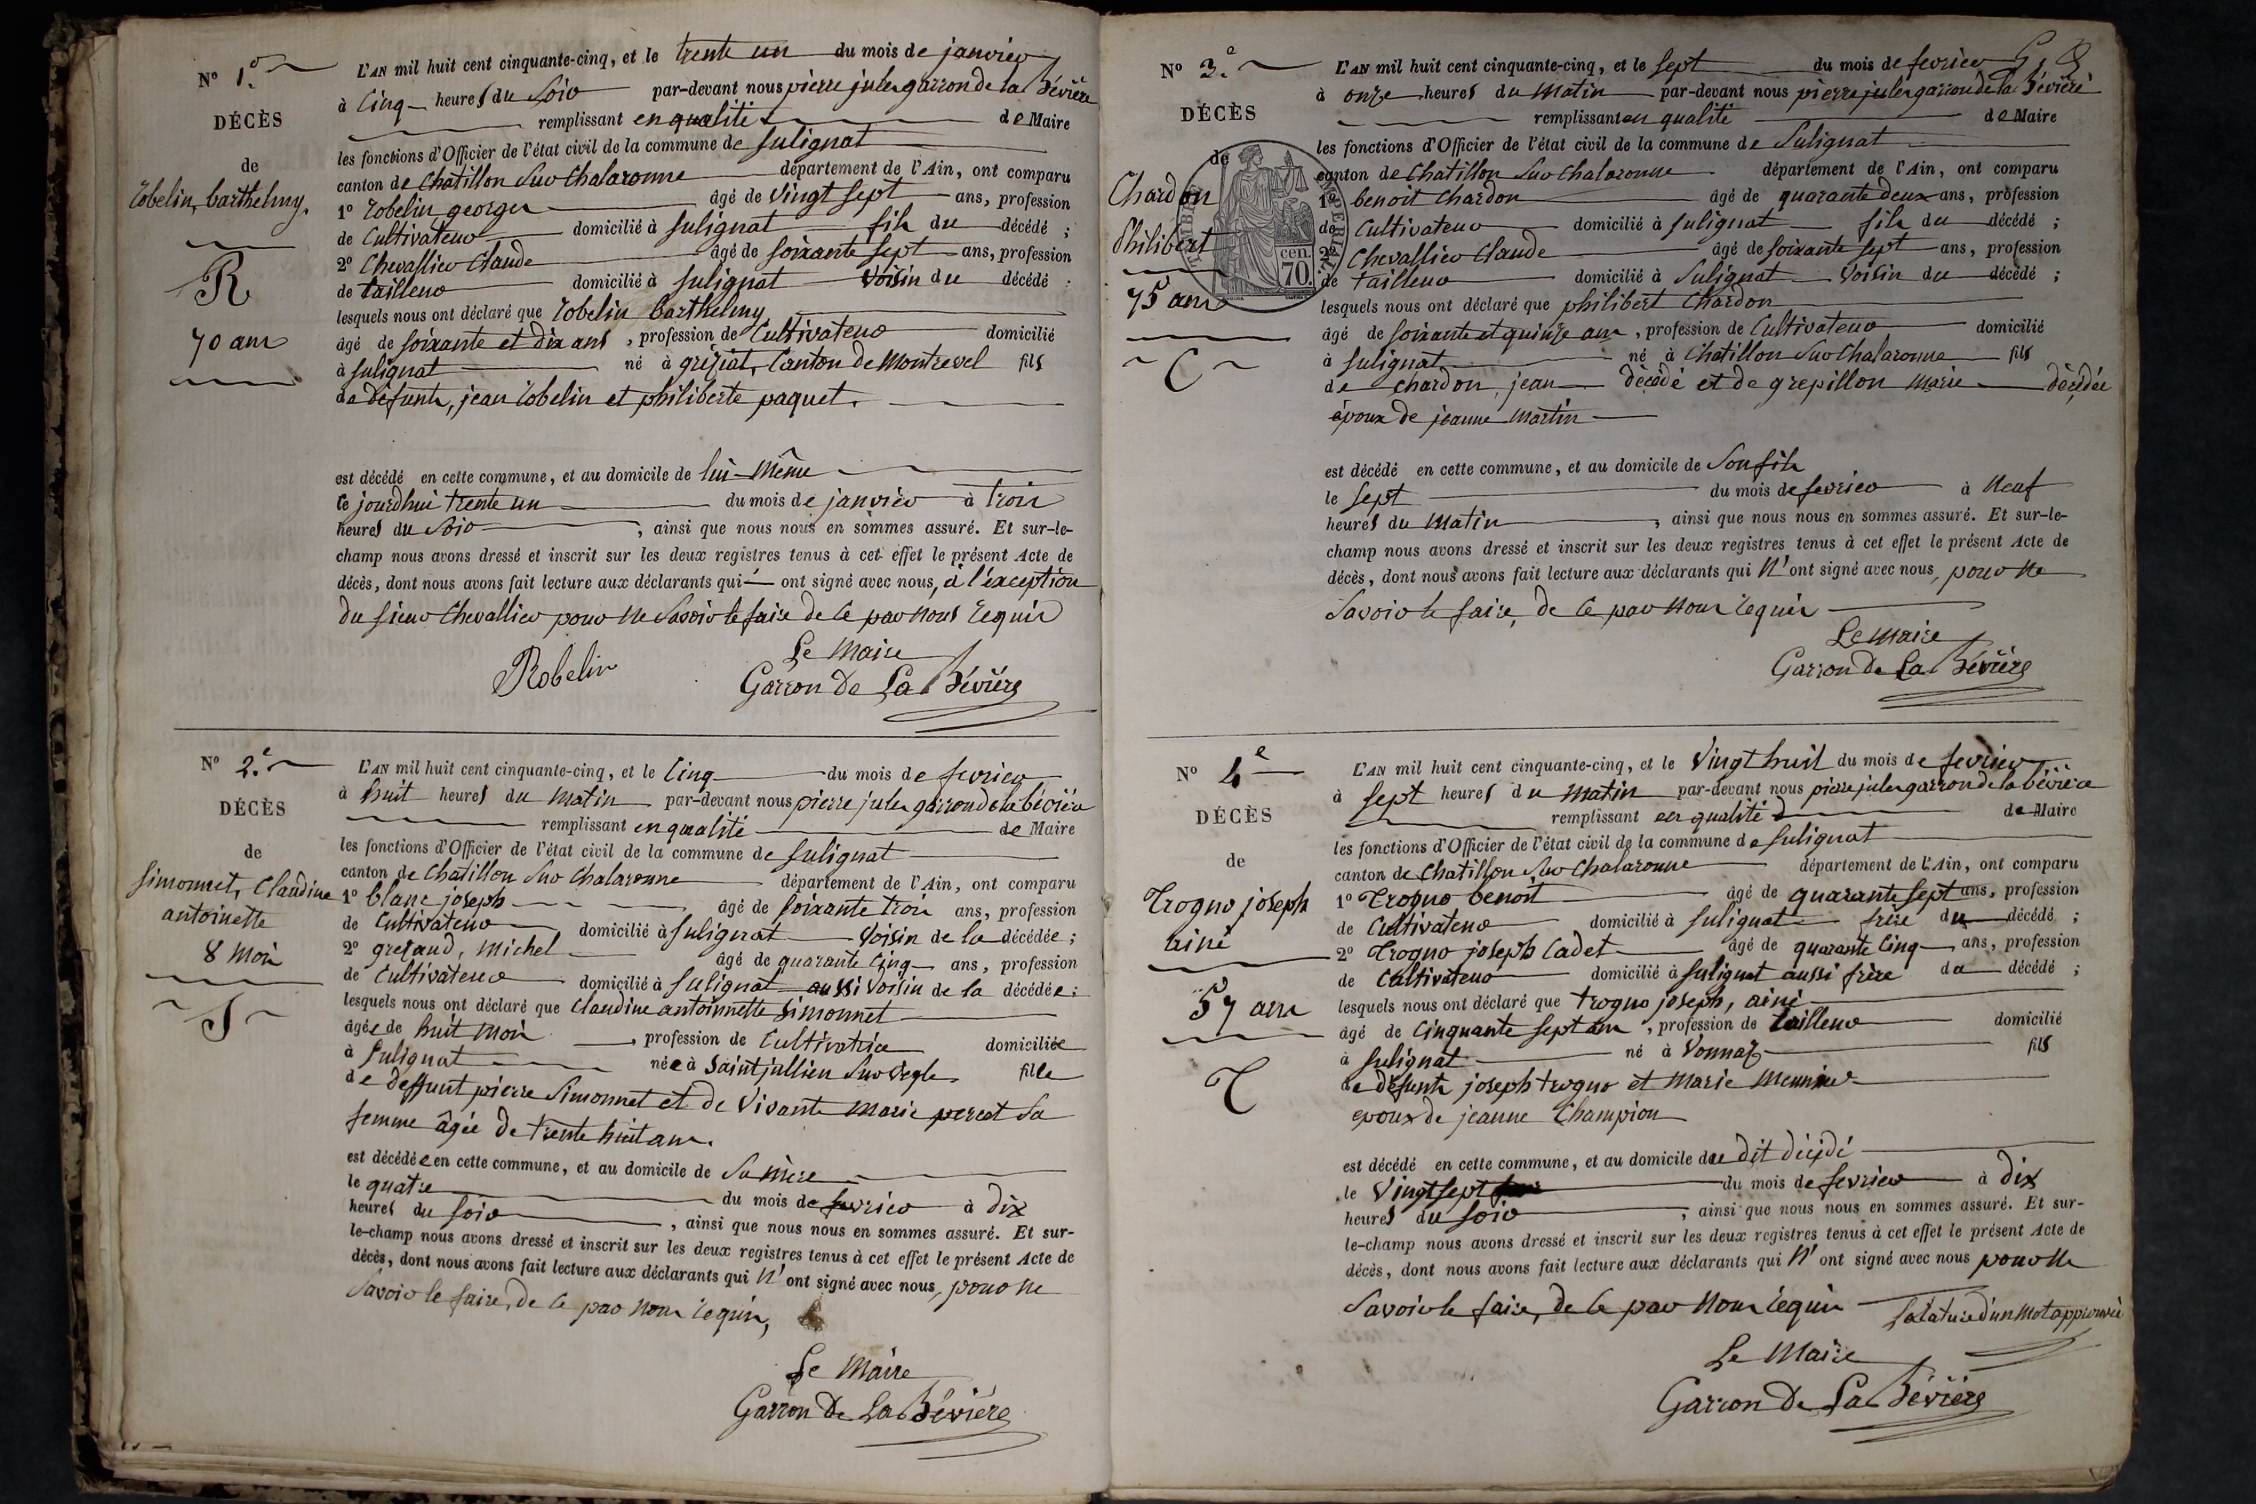 N° 1.er
DÉCÈS
de
robelin, barthelmy.
R
70 ans
L'AN mil huit cent cinquante-cinq, et le trente un du mois de janvier
à Cinq heures du Soir par-devant nous pierre jules garron de la Bévière
remplissant en qualité de Maire
les fonctions d'Officier de l'état civil de la commune de Sulignat
canton de Chatillon Sur Chalaronne département de l'Ain, ont comparu
1° robelin georges âgé de Vingt sept ans, profession
de Cultivateur domicilié à Sulignat fils du décédé ;
2° Chevallier Claude âgé de soixante sept ans, profession
de tailleur domicilié à Sulignat Voisin du décédé ;
lesquels nous ont déclaré que robelin barthelmy
âgé de soixante et dix ans, profession de Cultivateur domicilié
à Sulignat né à gréziat, Canton de Montrevel fils
de défunts, jean robelin et philiberte paquet.
est décédé en cette commune, et au domicile de lui-même
le jourdhui trente un du mois de janvier à trois
heures du Soir, ainsi que nous nous en sommes assuré. Et sur-le-
champ nous avons dressé et inscrit sur les deux registres tenus à cet effet le présent Acte de
décès, dont nous avons fait lecture aux déclarants qui ont signé avec nous, à l'éxception
du sieur Chevallier pour ne Savoir le faire de ce par nous requis
Le Maire
Robelin Garron De La Bévière
N° 2.e
DÉCÈS
de
Simonnet, Claudine
antoinette
8 mois
S
L'AN mil huit cent cinquante-cinq, et le Cinq du mois de fevrier
à huit heures du matin par-devant nous pierre jules garron de la bévière
remplissant en qualité de Maire
les fonctions d'Officier de l'état civil de la commune de Sulignat
canton de Chatillon Sur Chalaronne département de l'Ain, ont comparu
1° blanc joseph âgé de soixante trois ans, profession
de Cultivateur domicilié à Sulignat Voisin de la décédée ;
2° grezaud, Michel âgé de quarante Cinq ans, profession
de Cultivateur domicilié à Sulignat aussi Voisin de la décédée ;
lesquels nous ont déclaré que Claudine antoinette Simonnet
âgée de huit mois, profession de Cultivatrice domiciliée
à Sulignat née à Saint jullien Sur Vegle fille
de deffunt pierre Simonnet et de Vivante marie percet Sa
femme âgée de trente huit ans.
est décédée en cette commune, et au domicile de Sa mère
le quatre du mois de fevrier à dix
heures du Soir, ainsi que nous nous en sommes assuré. Et sur-
le-champ nous avons dressé et inscrit sur les deux registres tenus à cet effet le présent Acte de
décès, dont nous avons fait lecture aux déclarants qui n'ont signé avec nous, pour ne
Savoir le faire, de ce par nous requis,
Le Maire
Garron De La Bévière
N° 3.e
DÉCÈS
de
Chardon
Philibert
75 ans
C
TIMBRE IMPERIAL
70. cen.
L'AN mil huit cent cinquante-cinq, et le Sept du mois de fevrier
à onze heures du Matin par-devant nous pierre jules garron de la Bévière
remplissant en qualité de Maire
les fonctions d'Officier de l'état civil de la commune de Sulignat
canton de Chatillon Sur Chalaronne département de l'Ain, ont comparu
1° benoit Chardon âgé de quarante deux ans, profession
de Cultivateur domicilié à Sulignat fils du décédé ;
2° Chevallier Claude âgé de soixante sept ans, profession
de tailleur domicilié à Sulignat Voisin du décédé ;
lesquels nous ont déclaré que philibert Chardon
âgé de soixante et quinze ans, profession de Cultivateur domicilié
à Sulignat né à Chatillon Sur Chalaronne fils
de Chardon, jean décédé et de grepillon Marie décédée
époux de jeanne Martin
est décédé en cette commune, et au domicile de Son fils
le Sept du mois de fevrier à Neuf
heures du Matin, ainsi que nous nous en sommes assuré. Et sur-le-
champ nous avons dressé et inscrit sur les deux registres tenus à cet effet le présent Acte de
décès, dont nous avons fait lecture aux déclarants qui N'ont signé avec nous, pour ne
Savoir le faire, de ce par nous requis
Le Maire
Garron De La Bévière
N° 4e
DÉCÈS
de
Trogno joseph
ainé
57 ans
T
L'AN mil huit cent cinquante-cinq, et le Vingt huit du mois de fevrier
à sept heures du matin par-devant nous pierre jules garron de la bévière
remplissant en qualité de Maire
les fonctions d'Officier de l'état civil de la commune de Sulignat
canton de Chatillon Sur Chalaronne département de l'Ain, ont comparu
1° Trogno benoit âgé de quarante sept ans, profession
de Cultivateur domicilié à Sulignat frère du décédé ;
2° Trogno joseph Cadet âgé de quarante Cinq ans, profession
de Cultivateur domicilié à Sulignat aussi frère du décédé ;
lesquels nous ont déclaré que trogno joseph, ainé
âgé de Cinquante sept ans, profession de tailleur domicilié
à Sulignat né à Vonnaz fils
de défunts joseph trogno et Marie Meunier
epoux de jeanne Champion
est décédé en cette commune, et au domicile du dit décédé
le Vingt sept du mois de fevrier à dix
heures du Soir, ainsi que nous nous en sommes assuré. Et sur-
le-champ nous avons dressé et inscrit sur les deux registres tenus à cet effet le présent Acte de
décès, dont nous avons fait lecture aux déclarants qui N'ont signé avec nous pour ne
Savoir le faire, de ce par nous requis La rature d'un mot approuvée
Le Maire
Garron De La Bévière